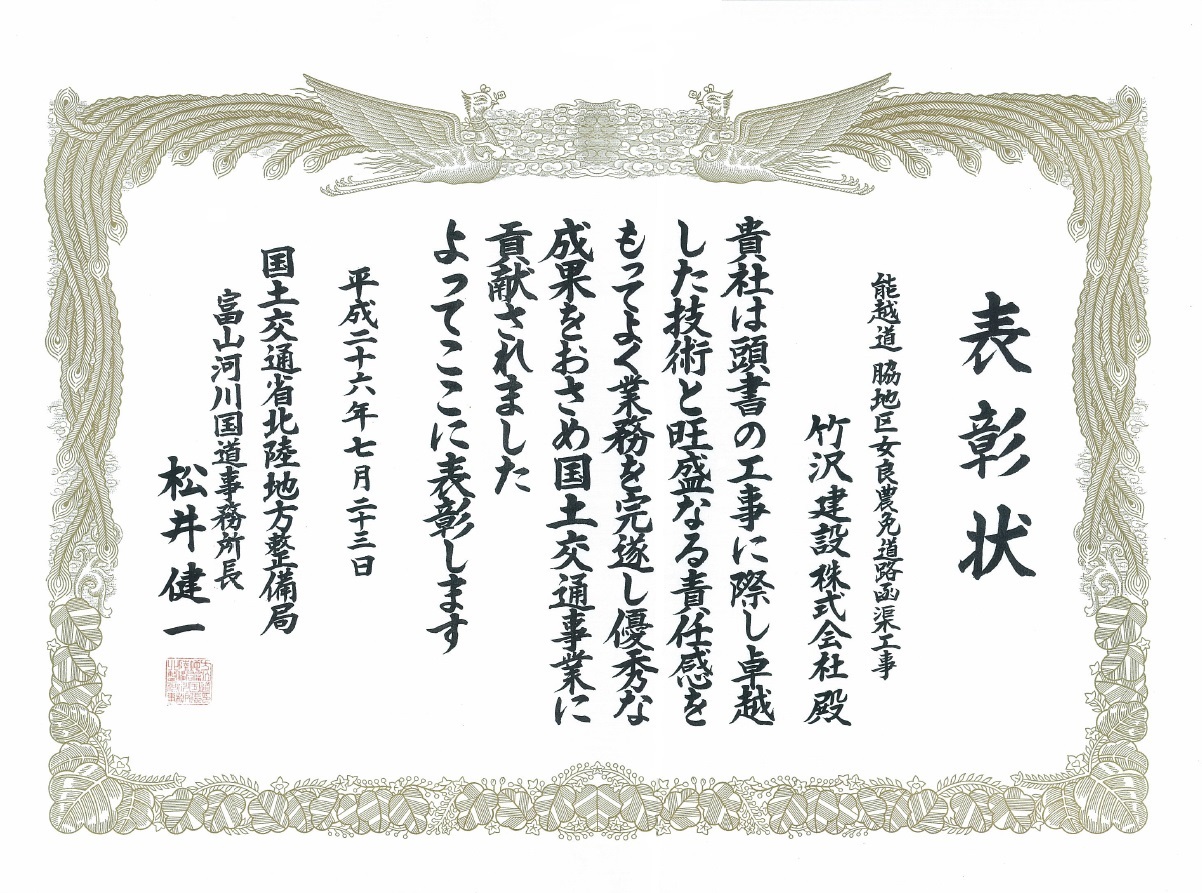 表彰状
能越道 脇地区女良農免道路函渠工事
竹沢建設株式会社 殿
貴社は頭書の工事に際し卓越
した技術と旺盛なる責任感を
もってよく業務を完遂し優秀な
成果をおさめ国土交通事業に
貢献されました
よってここに表彰します
平成二十六年七月二十三日
国土交通省北陸地方整備局
富山河川国道事務所長
松井健一